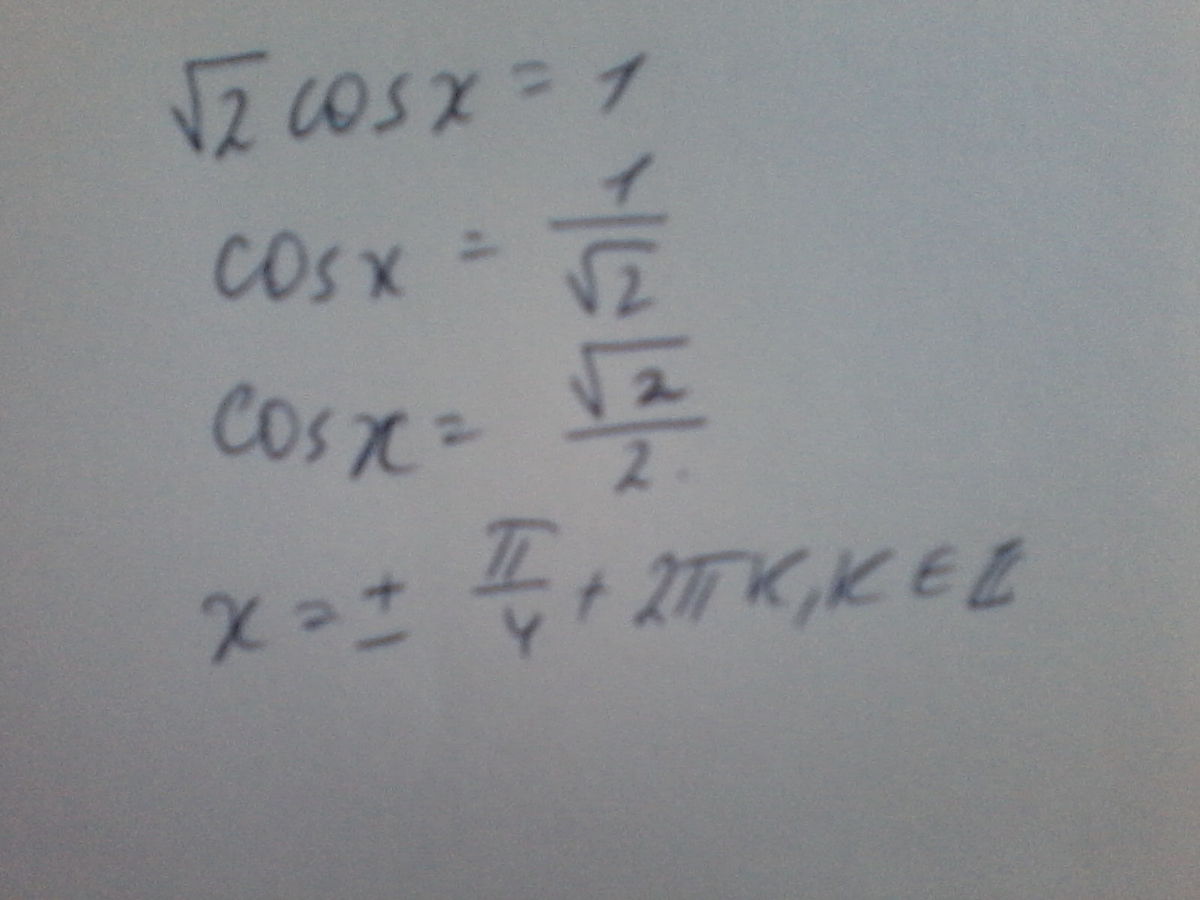 √2 cos x = 1
cos x = 1/√2
cos x = √2/2
x = ± π/4 + 2πk, k ∈ Z